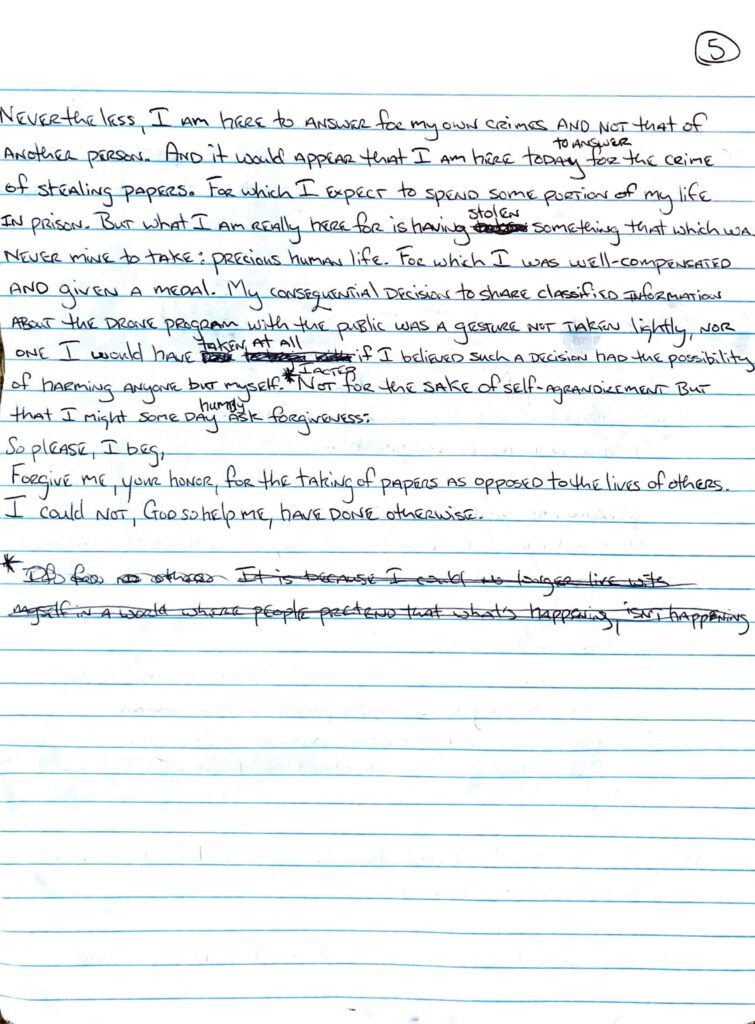 5
Nevertheless, I am here to answer for my own crimes and not that of
another person. And it would appear that I am here today to answer for the crime
of stealing papers. For which I expect to spend some portion of my life
in prison. But what I am really here for is having stolen something that which wa
never mine to take: precious human life. For which I was well-compensated
and given a medal. My consequential decision to share classified information
about the drone program with the public was a gesture not taken lightly, nor
one I would have taken at all if I believed such a decision had the possibility
of harming anyone but myself. * I acted Not for the sake of self-agrandizement but
that I might some day humbly ask forgiveness:
So please, I beg,
Forgive me, your honor, for the taking of papers as opposed to the lives of others.
I could not, God so help me, have done otherwise.
* others It is because I could no longer live with
myself in a world where people pretend that what's happening, isn't happening